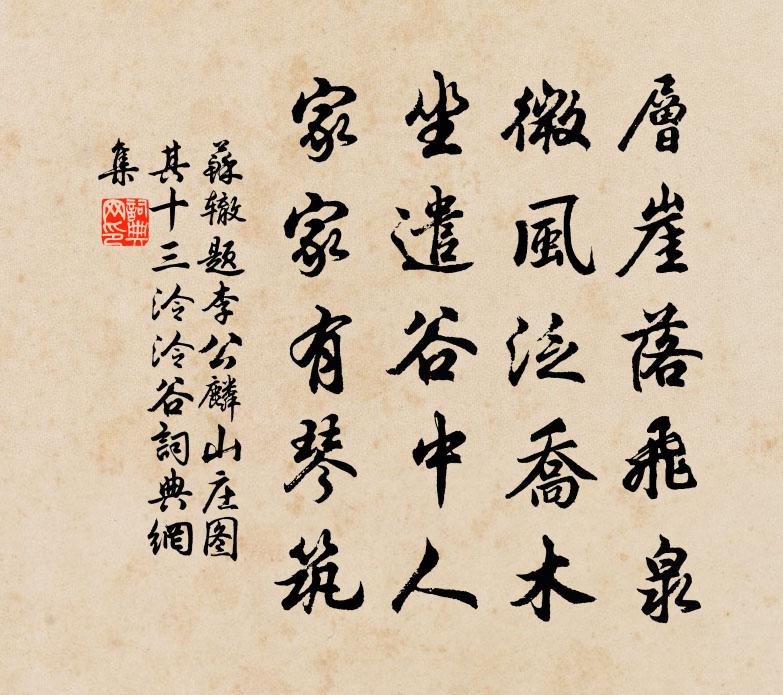 層崖落飛泉
微風泛喬木
坐遣谷中人
家家有琴筑
蘇辙题李公麟山庄图
其十三泠泠谷詞典網
集
詞典网印